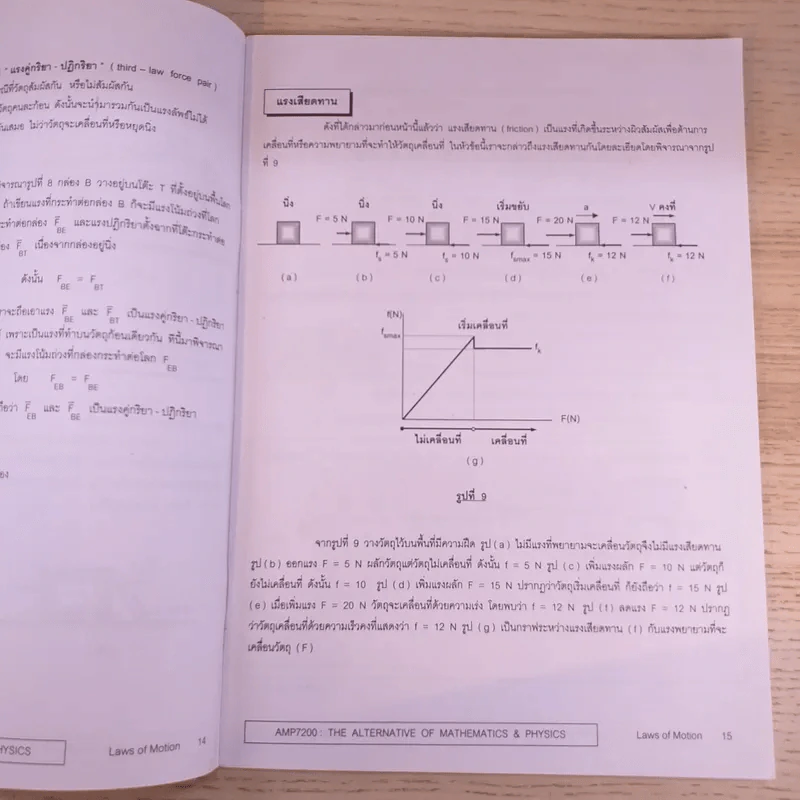 " แรงคู่กริยา - ปฏิกริยา " ( third – law force pair )
ณีที่วัตถุสัมผัสกัน หรือไม่สัมผัสกัน
วัตถุคนละก้อน ดังนั้นจะนำมารวมกันเป็นแรงลัพธ์ไม่ได้
กันเสมอ ไม่ว่าวัตถุจะเคลื่อนที่หรือหยุดนิ่ง
จารณารูปที่ 8 กล่อง B วางอยู่บนโต๊ะ T ที่ตั้งอยู่บนพื้นโลก
ถ้าเขียนแรงที่กระทำต่อกล่อง B ก็จะมีแรงโน้มถ่วงที่โลก
ระทำต่อกล่อง F̅BE และแรงปฏิกริยาตั้งฉากที่โต๊ะกระทำต่อ
อง F̅BT เนื่องจากกล่องอยู่นิ่ง
ดังนั้น FBE = FBT
าจะถือเอาแรง F̅BE และ F̅BT เป็นแรงคู่กริยา - ปฏิกริยา
เพราะเป็นแรงที่ทำบนวัตถุก้อนเดียวกัน ทีนี้มาพิจารณา
จะมีแรงโน้มถ่วงที่กล่องกระทำต่อโลก FEB
โดย FEB = FBE
ถือว่า F̅EB และ F̅BE เป็นแรงคู่กริยา - ปฏิกริยา
อง
HYSICS Laws of Motion 14
แรงเสียดทาน
ดังที่ได้กล่าวมาก่อนหน้านี้แล้วว่า แรงเสียดทาน ( friction ) เป็นแรงที่เกิดขึ้นระหว่างผิวสัมผัสเพื่อต้านการ
เคลื่อนที่หรือความพยายามที่จะทำให้วัตถุเคลื่อนที่ ในหัวข้อนี้เราจะกล่าวถึงแรงเสียดทานกันโดยละเอียดโดยพิจารณาจากรูป
ที่ 9
นิ่ง นิ่ง นิ่ง เริ่มขยับ a V คงที่
F = 5 N F = 10 N F = 15 N F = 20 N F = 12 N
fs = 5 N fs = 10 N fsmax = 15 N fk = 12 N fk = 12 N
( a ) ( b ) ( c ) ( d ) ( e ) ( f )
f(N)
fsmax
เริ่มเคลื่อนที่
fk
F(N)
ไม่เคลื่อนที่ เคลื่อนที่
( g )
รูปที่ 9
จากรูปที่ 9 วางวัตถุไว้บนพื้นที่มีความฝืด รูป ( a ) ไม่มีแรงที่พยายามจะเคลื่อนวัตถุจึงไม่มีแรงเสียดทาน
รูป ( b ) ออกแรง F = 5 N ผลักวัตถุแต่วัตถุไม่เคลื่อนที่ ดังนั้น f = 5 N รูป ( c ) เพิ่มแรงผลัก F = 10 N แต่วัตถุก็
ยังไม่เคลื่อนที่ ดังนั้น f = 10 รูป ( d ) เพิ่มแรงผลัก F = 15 N ปรากฏว่าวัตถุเริ่มเคลื่อนที่ ก็ยังถือว่า f = 15 N รูป
( e ) เมื่อเพิ่มแรง F = 20 N วัตถุจะเคลื่อนที่ด้วยความเร่ง โดยพบว่า f = 12 N รูป ( f ) ลดแรง F = 12 N ปรากฏ
ว่าวัตถุเคลื่อนที่ด้วยความเร็วคงที่แสดงว่า f = 12 N รูป ( g ) เป็นกราฟระหว่างแรงเสียดทาน ( f ) กับแรงพยายามที่จะ
เคลื่อนวัตถุ ( F )
AMP7200 : THE ALTERNATIVE OF MATHEMATICS & PHYSICS Laws of Motion 15